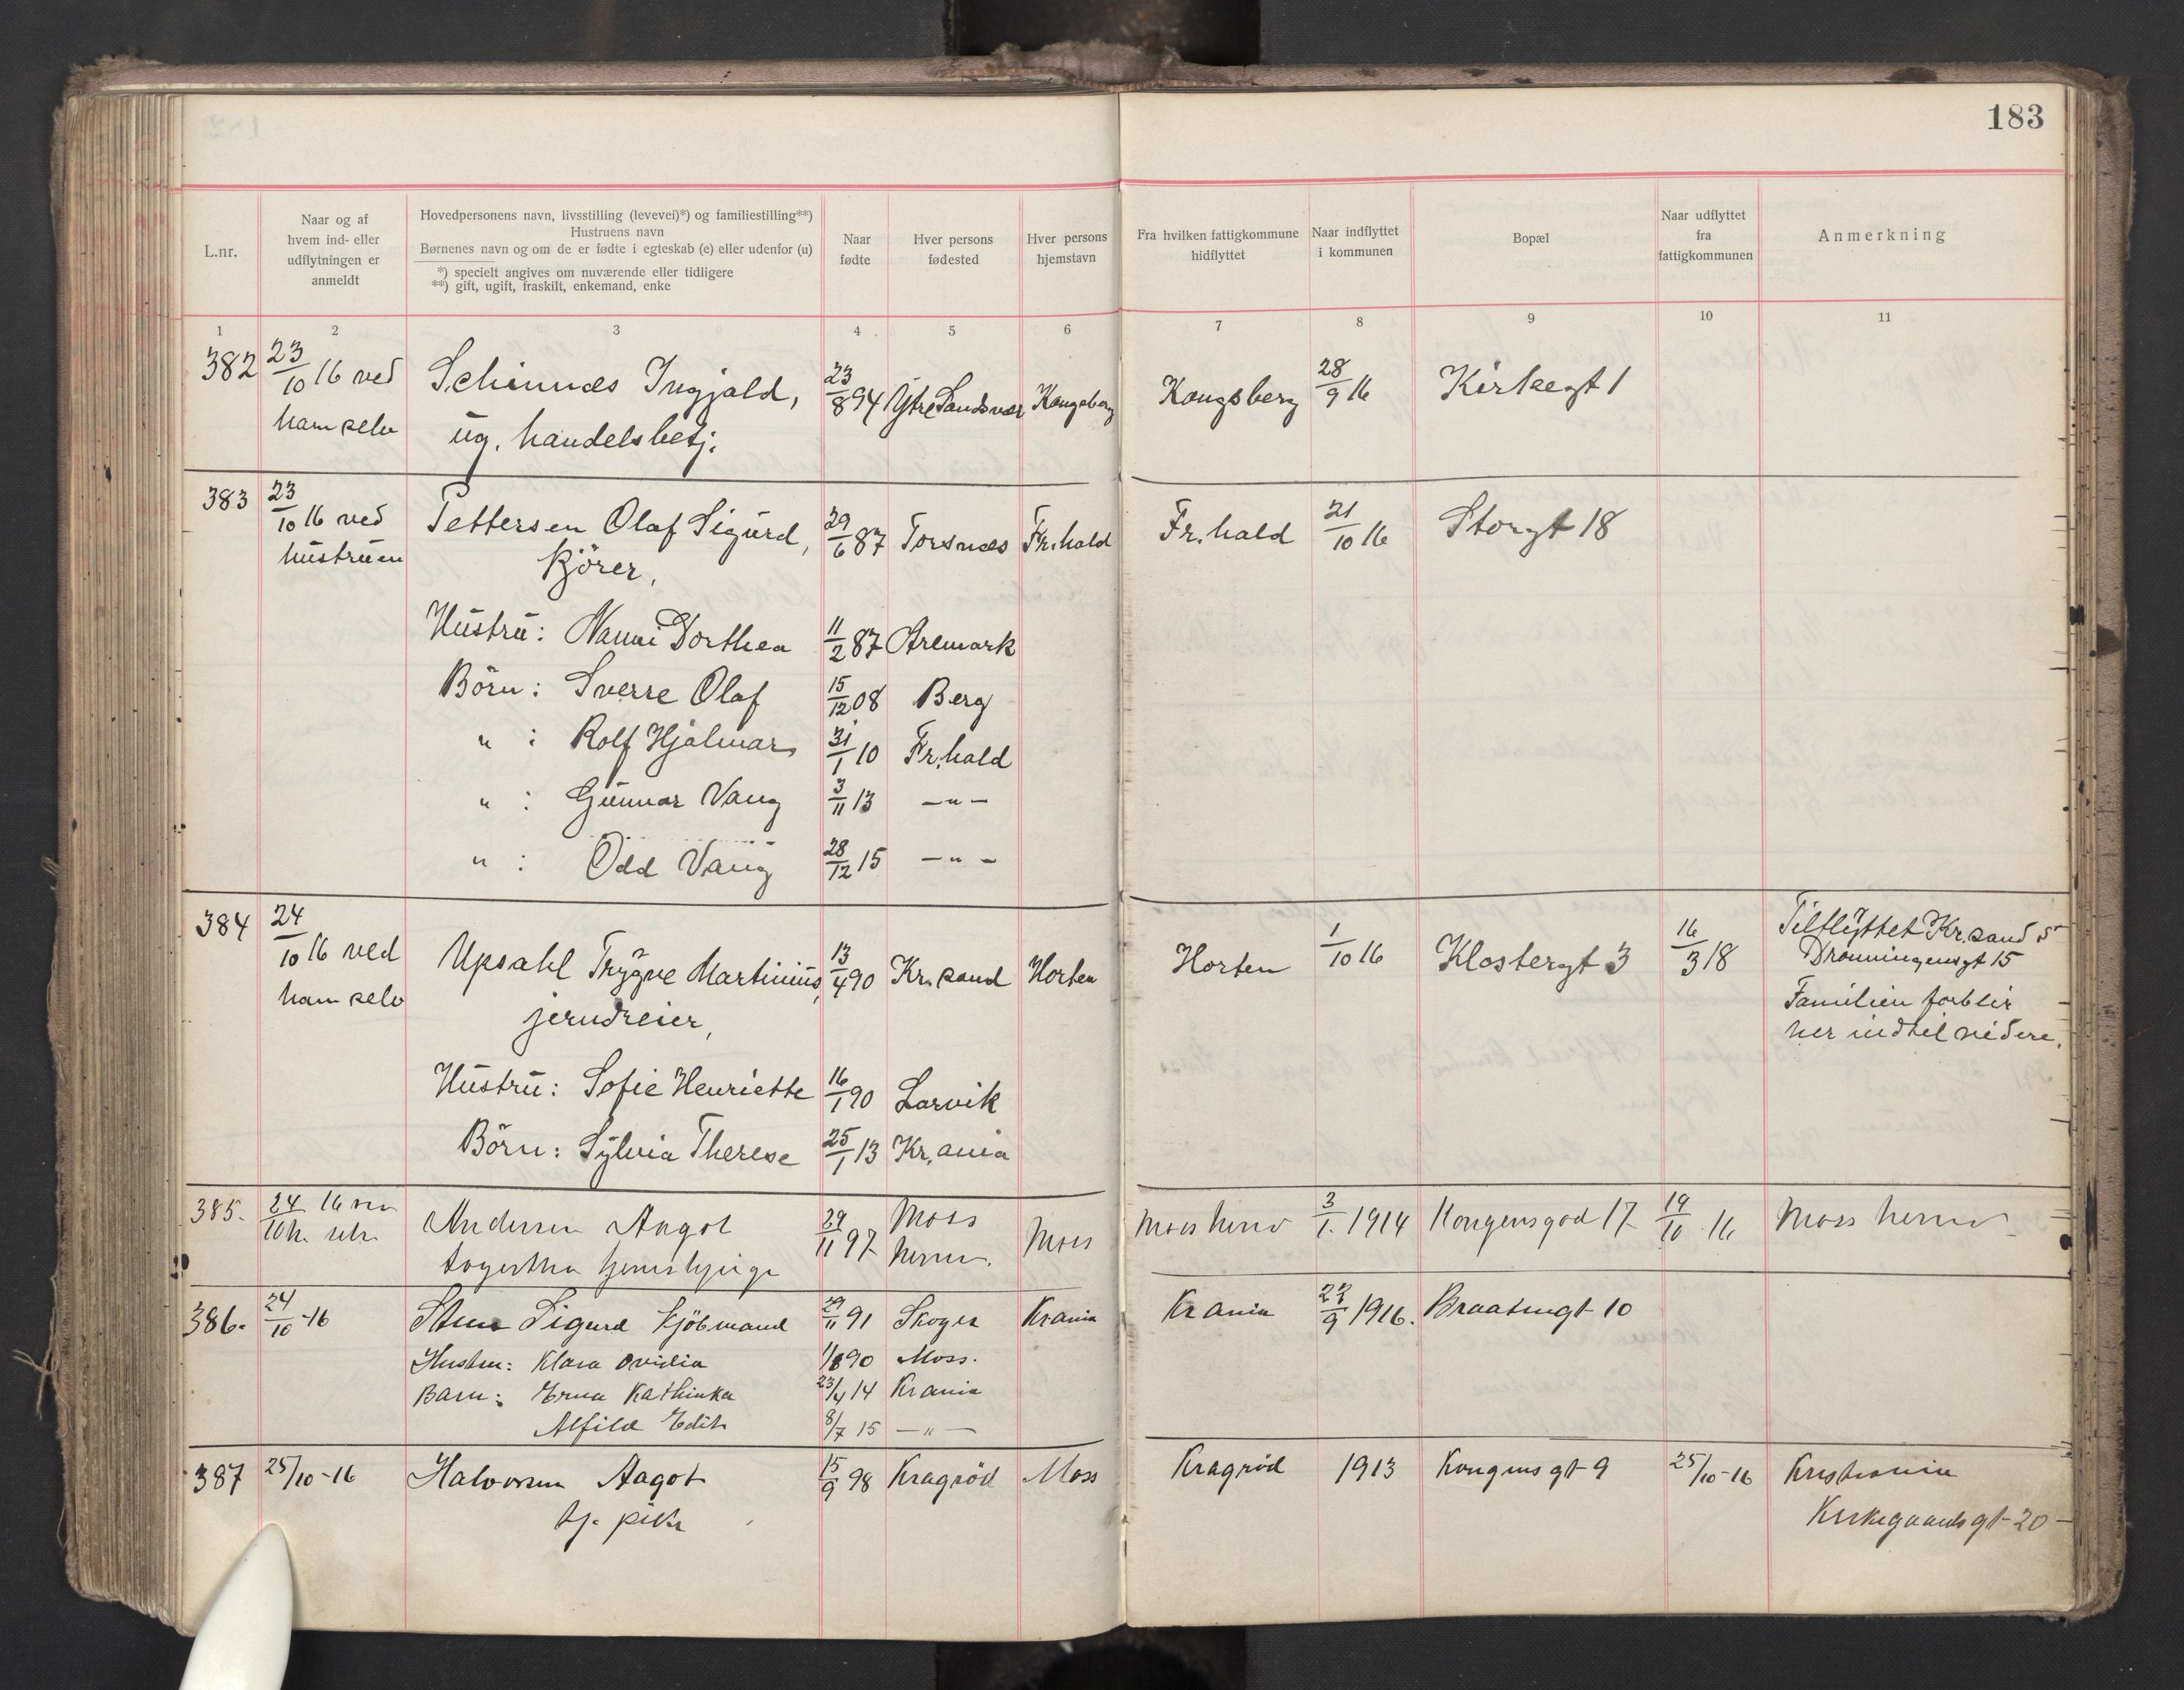 183
L.nr.
Naar og af
hvem ind- eller
udflytningen er
anmeldt
Hovedpersonens navn, livsstilling (levevei)*) og familiestilling**)
Hustruens navn
Børnenes navn og om de er fødte i egteskab (e) eller udenfor (u)
*) specielt angives om nuværende eller tidligere
**) gift, ugift, fraskilt, enkemand, enke
Naar
fødte
Hver persons
fødested
Hver persons
hjemstavn
Fra hvilken fattigkommune
hidflyttet
Naar indflyttet
i kommunen
Bopæl
Naar udflyttet
fra
fattigkommunen
Anmerkning
1 2 3 4 5 6 7 8 9 10 11
382 23/10 16 ved Schinnæs Ingjald, 23/8 94 Ytre Sandsvær Kongsberg Kongsberg 28/9 16 Kirkegt 1
ham selv ug. handelsbetj.
383 23/10 16 ved Pettersen Olaf Sigurd, 29/6 87 Torsnæs Fr.hald Fr.hald 21/10 16 Storgt 18
hustruen Kjörer,
Hustru: Nanni Dorthea 11/2 87 Aremark
Börn: Sverre Olaf 15/12 08 Berg
" : Rolf Hjalmar 31/1 10 Fr.hald
" : Gunnar Vang 3/11 13 -"-
" : Odd Vang 28/12 15 -"-
384 24/10 16 ved Upsahl Trygve Martinius, 13/4 90 Kr.sand Horten Horten 1/10 16 Klostergt 3 16/3 18 Tilflyttet Kr.sand S
ham selv jerndreier, Dronningensgt 15
Familien forblir
her indtil videre.
Hustru: Sofie Henriette 16/1 90 Larvik
Börn: Sylvia Therese 25/1 13 Kr.ania
385. 24/10 16 Andersen Aagot 29/11 97 Moss Moss Moss herred 3/1. 1914 Kongensgad 17 19/10 16 Moss herred
herred.
386. 24/10 -16 Sigurd Kjöbmand 29/11 91 Skoger Krania Krania 1916. Braatengt 10
Hustru: Klara Ovidia 1/8 90 Moss.
Barn: Erna Kathinka 23/4 14 Krania
Alfild Edith 8/7 15 -"-
387 25/10-16 Halvorsen Aagot 15/9 98 Kragröd Moss Kragröd 1913 Kongensgt 9 25/10-16 Kristiania
tj. pike Kirkegaards gt 20